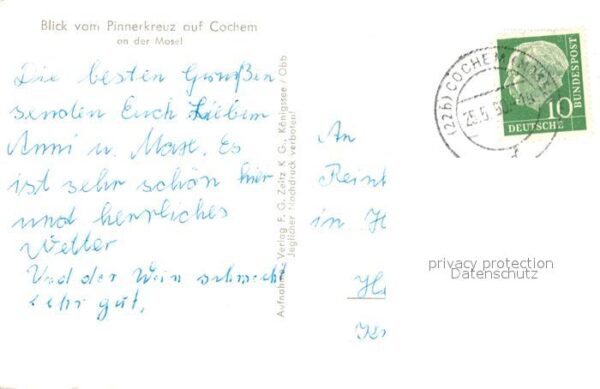 Blick vom Pinnerkreuz auf Cochem
an der Mosel
Die besten Grüßen
senden Euch Lieben
Anni u. Max. Es
ist sehr schön hier
und herrliches
Wetter
Und der Wein schmeckt
sehr gut.
Aufnahme u. Verlag F. G. Zeitz K. G., Königssee / Obb
Jeglicher Nachdruck verboten!
An
in H
(22b) COCHEM (MOSEL)
10
DEUTSCHE
BUNDESPOST
privacy protection
Datenschutz